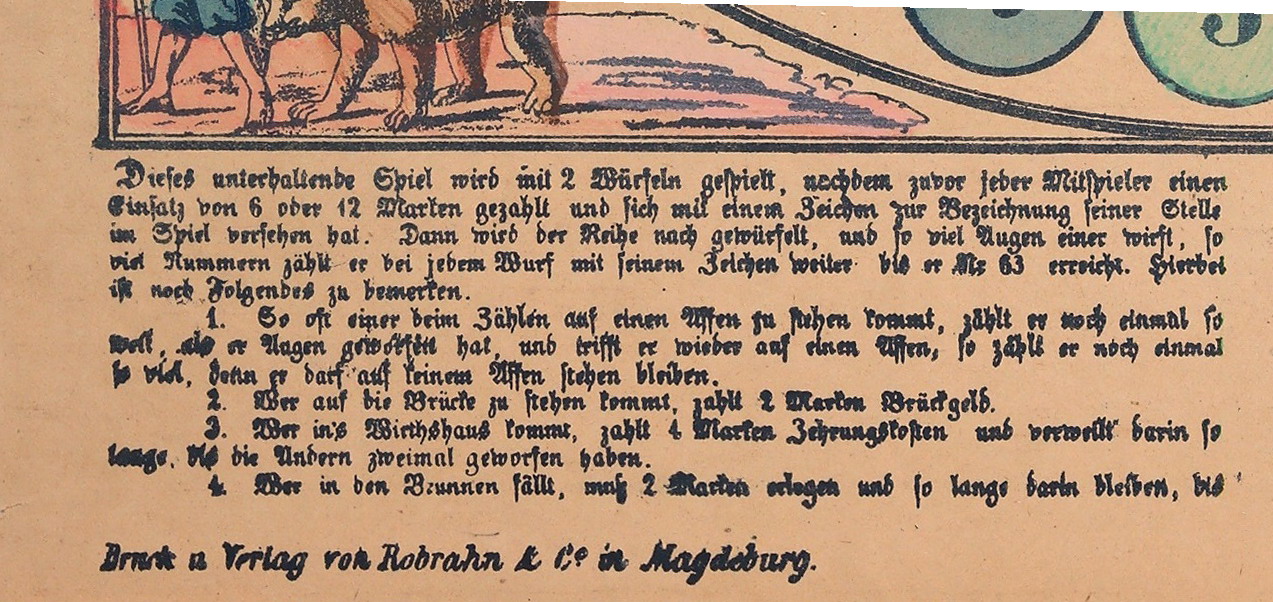 Dieses unterhaltende Spiel wird mit 2 Würfeln gespielt, nachdem zuvor jeder Mitspieler einen
Einsatz von 6 oder 12 Marken gezahlt und sich mit einem Zeichen zur Bezeichnung seiner Stelle
im Spiel versehen hat. Dann wird der Reihe nach gewürfelt, und so viel Augen einer wirft, so
viel Nummern zählt er bei jedem Wurf mit seinem Zeichen weiter bis er Nr 63 erreicht. Hierbei
ist noch Folgendes zu bemerken.
1. So oft einer beim Zählen auf einen Affen zu stehen kommt, zählt er noch einmal so
weit, als er Augen geworfen hat, und trifft er wieder auf einen Affen, so zählt er noch einmal
so viel, denn er darf auf keinem Affen stehen bleiben.
2. Wer auf die Brücke zu stehen kommt, zahlt 2 Marken Brückgeld.
3. Wer in's Wirthshaus kommt, zahlt 4 Marken Zehrungskosten und verweilt darin so
lange, bis die Andern zweimal geworfen haben.
4. Wer in den Brunnen fällt, muß 2 Marken erlegen und so lange darin bleiben, bis
Druck u Verlag von Robrahn & Co in Magdeburg.